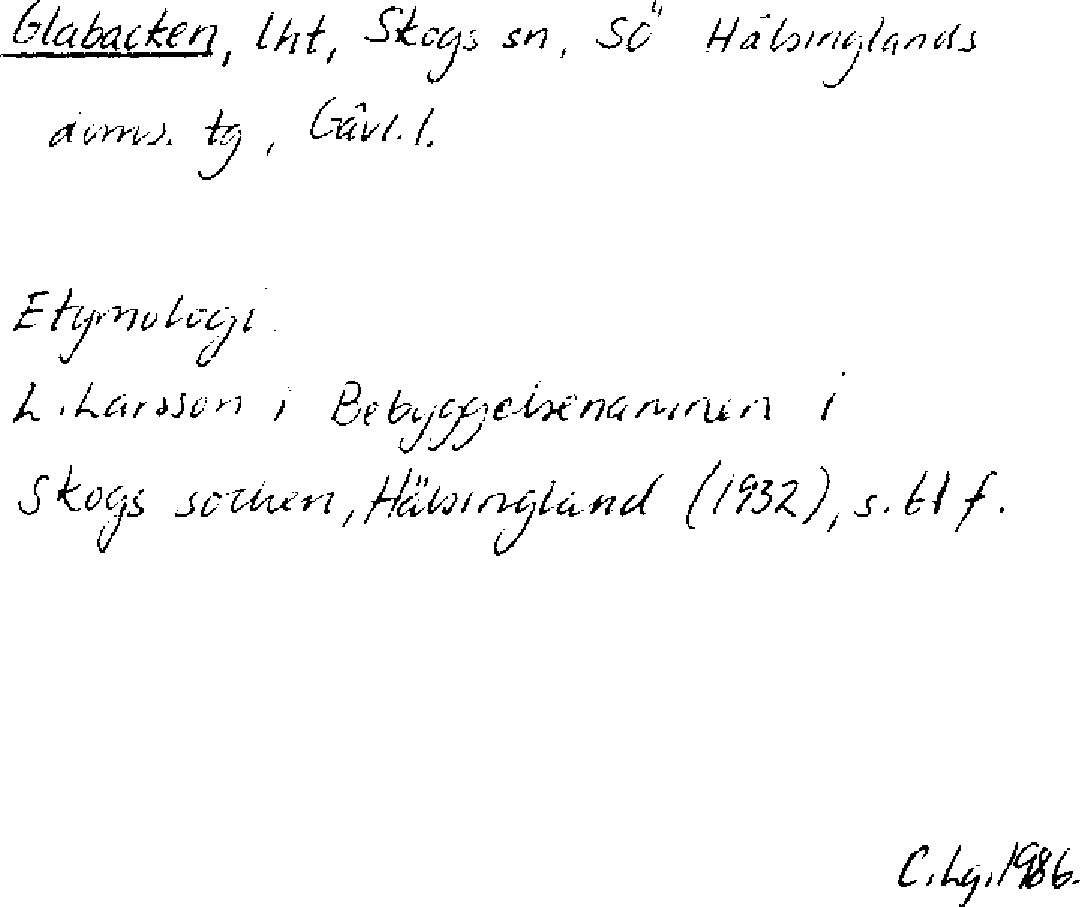 Glabacken, lht, Skogs sn, SÖ Hälsinglands
doms. tg, Gävl. l.
Etymologi.
L. Larsson i Bebyggelsenamnen i
Skogs socken, Hälsingland (1932), s. 61 f.
C. Lg. 1986.